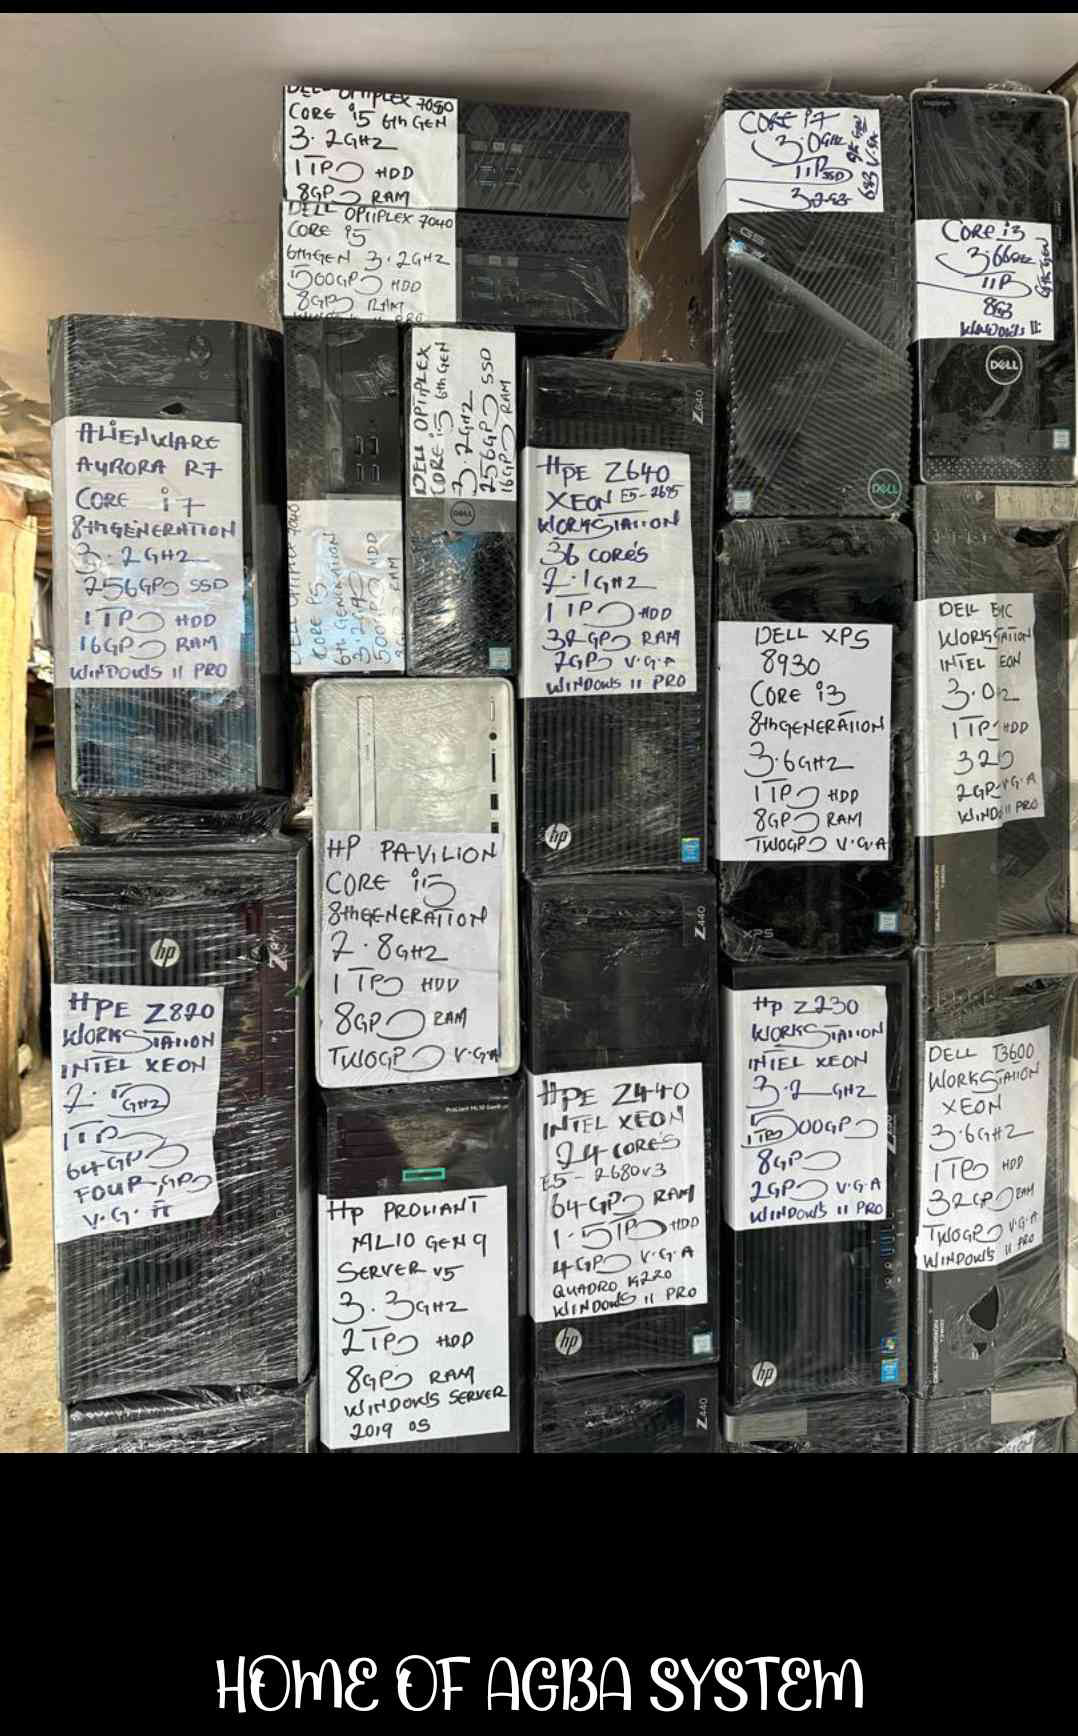 DELL OPTIPLEX 7050
CORE i5 6th GEN
3.2GHZ
1TB HDD
8GB RAM
DELL OPTIPLEX 7040
CORE i5
6th GEN 3.2GHZ
500GB HDD
8GB RAM
DELL OPTIPLEX
CORE i5 6th GEN
3.2GHZ
256GB SSD
16GB RAM
DELL
CORE i5
6th GENERATION
500GB HDD
CORE i7
3.0GHZ
G5
DELL
CORE i3
3.6GHZ
1TB
8GB
WINDOWS 11
DELL
ALIENWARE
AURORA R7
CORE i7
8th GENERATION
3.2GHZ
256GB SSD
1TB HDD
16GB RAM
WINDOWS 11 PRO
Z640
HPE Z640
XEON E5-2695
WORKSTATION
36 CORES
2.1GHZ
1TB HDD
32GB RAM
2GB V.G.A
WINDOWS 11 PRO
hp
DELL XPS
8930
CORE i3
8th GENERATION
3.6GHZ
1TB HDD
8GB RAM
TWOGB V.G.A
XPS
DELL
WORKSTATION
INTEL
3.0
1TB HDD
2GB V.G.A
HP PAVILION
CORE i5
8th GENERATION
2.8GHZ
1TB HDD
8GB RAM
TWOGB V.G.A
hp
HPE Z820
WORKSTATION
INTEL XEON
1TB
64GB
FOUR GB
V.G.A
ProLiant ML10 Gen9
HP PROLIANT
ML10 GEN 9
SERVER V5
3.3GHZ
2TB HDD
8GB RAM
WINDOWS SERVER
2019 OS
Z440
HPE Z440
INTEL XEON
24 CORES
E5-2680v3
64GB RAM
1.5TB HDD
4GB V.G.A
QUADRO K220
WINDOWS 11 PRO
hp
Z440
HP Z230
WORKSTATION
INTEL XEON
3.2 GHZ
500GB
1TB
8GB
2GB V.G.A
WINDOWS 11 PRO
hp
DELL T3600
WORKSTATION
XEON
3.6GHZ
1TB HDD
32GB RAM
TWOGB V.G.A
WINDOWS 11 PRO
HOME OF AGBA SYSTEM